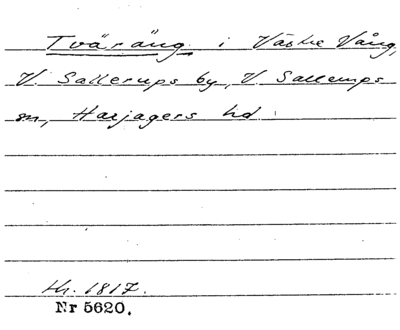 Tväräng i Västre Vång,
V. Sallerups by, V. Sallerups
sn, Harjagers hd
Hr. 1817.
Nr 5620.